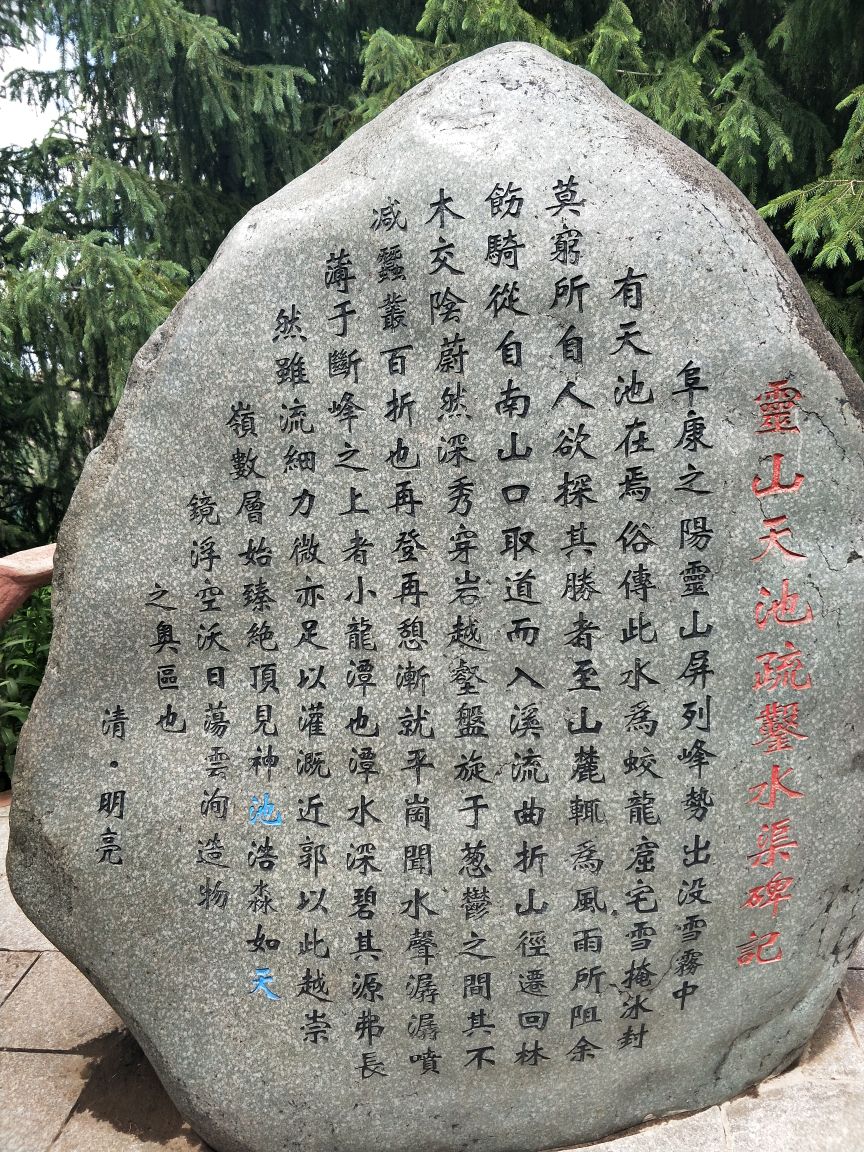 靈山天池疏鑿水渠碑記
阜康之陽靈山屏列峰勢出没雪霧中
有天池在焉俗傳此水爲蛟龍窟宅雪掩冰封
莫窮所自人欲探其勝者至山麓輒爲風雨所阻余
飭騎從自南山口取道而入溪流曲折山徑遷回林
木交陰蔚然深秀穿岩越壑盤旋于葱鬱之間其不
减蠶叢百折也再登再憩漸就平崗聞水聲潺潺噴
薄于斷峰之上者小龍潭也潭水深碧其源弗長
然雖流細力微亦足以灌溉近郭以此越崇
嶺數層始臻絶頂見神池浩淼如天
鏡浮空沃日蕩雲洵造物
之奥區也
清·明亮